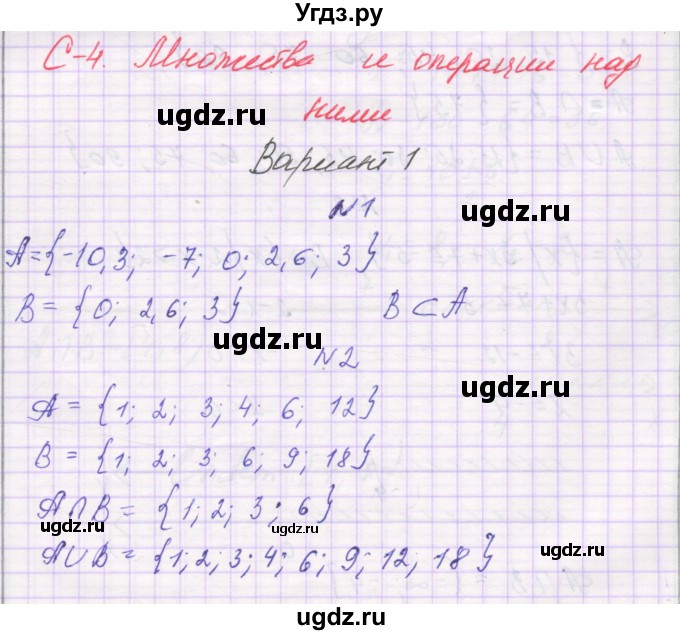 Угдз.ру
С-4. Множества и операции над
ними
ugdz.ru
Вариант 1
ugdz.ru
N1
A={-10,3; -7; 0; 2,6; 3}
B = {0; 2,6; 3} B⊂A
ugdz.ru
N2
ugdz.ru
A = {1; 2; 3; 4; 6; 12}
B = {1; 2; 3; 6; 9; 18}
A∩B = {1; 2; 3; 6}
ugdz.ru
ugdz.ru
A∪B = {1; 2; 3; 4; 6; 9; 12, 18}
ugdz.ru
ugdz.ru